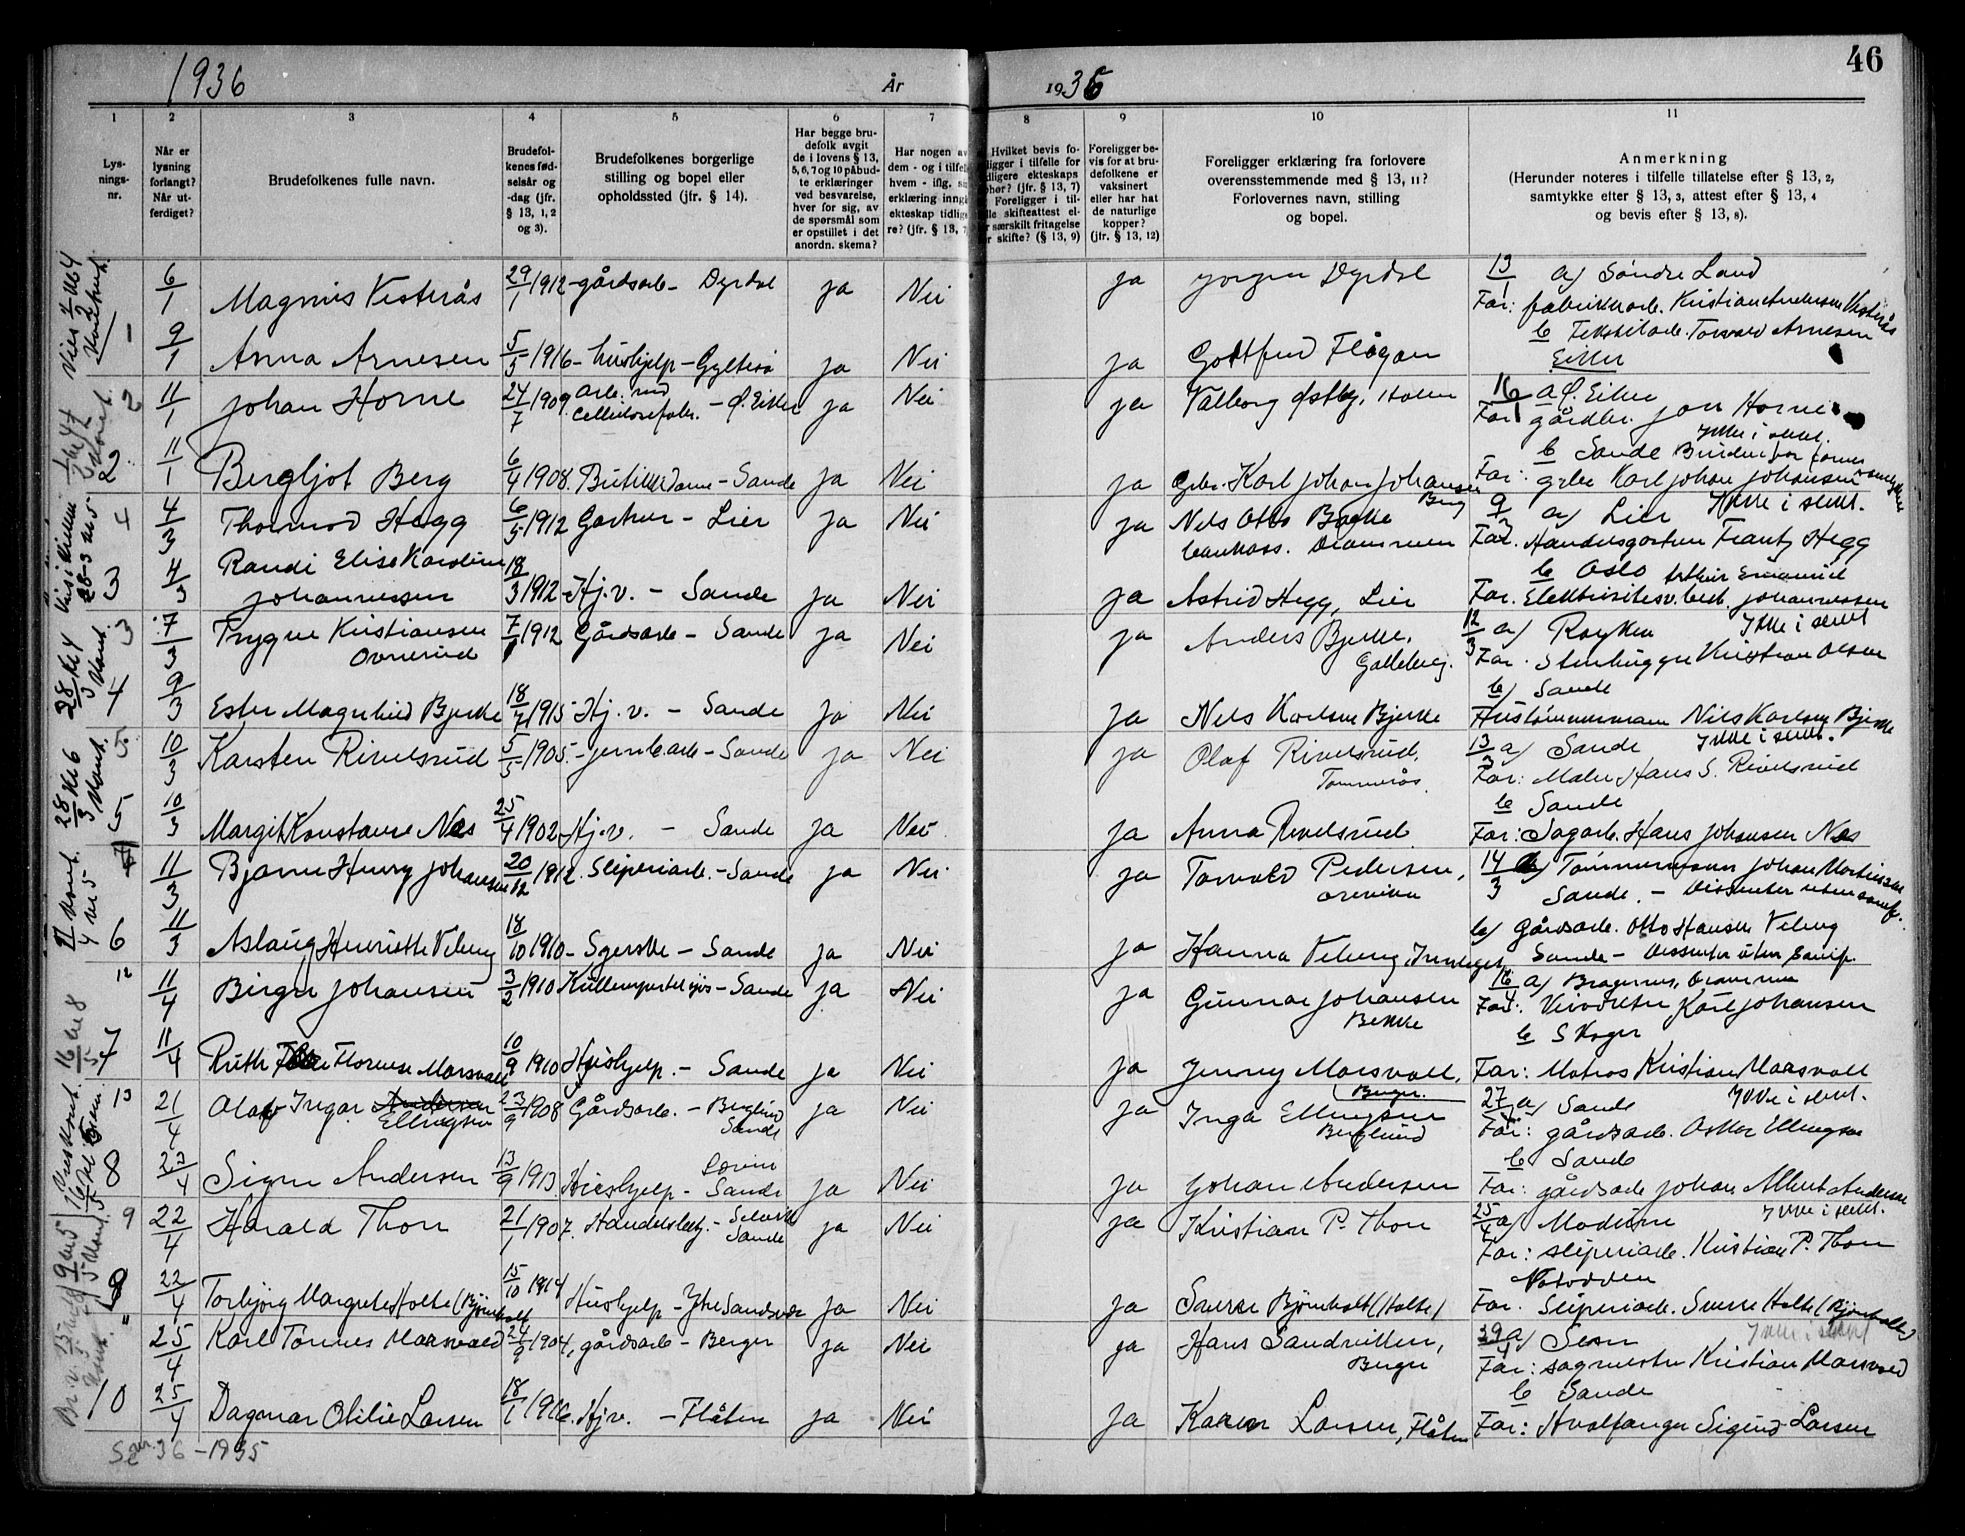 1936
År
1936
46
1
2
3
4
5
6
7
8
9
10
11
Lysnings-nr.
Når er lysning forlangt? Når utferdiget?
Brudefolkenes fulle navn.
Brudefolkenes fødselsår og -dag (jfr. § 13, 1, 2 og 3).
Brudefolkenes borgerlige stilling og bopel eller opholdssted (jfr. § 14).
Har begge brudefolk avgit de i lovens § 13, 5, 6, 7 og 10 påbudte erklæringer ved besvarelse, hver for sig, av de spørsmål som er opstillet i det anordn. skema?
Har nogen av dem - og i tilfelle hvem - iflg. erklæring inngått ekteskap tidligere? (jfr. § 13, 7
Hvilket bevis foreligger i tilfelle for tidligere ekteskaps ophør? (jfr. § 13, 7) Foreligger i tilfelle skifteattest eller særskilt fritagelse for skifte? (§ 13, 9)
Foreligger bevis for at brudefolkene er vaksinert eller har hat de naturlige kopper? (jfr. § 13, 12)
Foreligger erklæring fra forlovere overensstemmende med § 13, 11? Forlovernes navn, stilling og bopel.
Anmerkning (Herunder noteres i tilfelle tillatelse efter § 13, 2, samtykke efter § 13, 3, attest efter § 13, 4 og bevis efter § 13, 8).
6/1 Magnus Vesterås 29/1 1912 - gårdsarb - Dyrdal ja Nei ja Jørgen Dyrdal 13/1 a) Søndre Land
Far: fabrikkarb. Kristian Andersen Vesterås
1 9/1 Anna Arnesen 5/5 1916 - hushjelp - ja Nei ja Gottfred Flågan b Tekstilarb. Torvald Arnesen
Eiker
2 11/1 Johan Horne 24/7 1909 arb. ved Cellulosefabr. - Ø. Eiker ja Nei ja Valborg Østby, Holm 16/1 a Ø. Eiker
Far gårdbr. Jon Horne
Ikke i slekt.
2 11/1 Bergljot Berg 6/4 1908. Butikkdame - Sande ja Nei ja Gbr. Karl Johan Johansen Berg b Sande
Far: gbr Karl Johan Johansen
4 4/3 Thormod Hegg 6/5 1912 Gartner - Lier ja Nei ja Nels Otto Bakke Drammen 9/3 a) Lier Ikke i slekt.
Far. Handelsgartner Frantz Hegg
3 4/3 Randi Elise Karoline Johannessen 18/3 1912 - Hj.v. - Sande ja Nei ja Astrid Hegg, Lier b Oslo
Far. Elektrisitesv.best. Arthur Emanuel Johannessen
3 7/3 Trygve Kristiansen Ovnerud 7/1 1912 Gårdsarb - Sande ja Nei ja Anders Bjerke, Galleberg. 12/3 a) Røyken Ikke i slekt
Far. Stenhugger Kristian Olsen
4 9/3 Ester Magnhild Bjerke 18/7 1915 - Hj.v. - Sande ja Nei ja Nels Karlsen Bjerke b) Sande
Hustømmermann Nils Karlsen Bjerke
5 10/3 Karsten Rivelsrud 5/5 1905. - jernb.arb - Sande ja Nei ja Olaf Rivelsrud, Tommerås 13/3 a) Sande Ikke i slekt.
Far: Maler Hans S. Rivelsrud
5 10/3 Margit Konstanse Næs 25/4 1902 - Hj.v. - Sande ja Nei ja Anna Rivelsrud b Sande
Far: Sagarb. Hans Johansen Næs
11/3 Bjarne Henry Johansen 20/12 1912. Sliperiarb. - Sande ja Nei ja Torvald Pedersen, 14/3 a) Tømmermann Johan Martinsen
Sande. - Dissenter uten samf.
6 11/3 Aslaug Henriette Veberg 18/10 1910 - Syerske - Sande ja Nei ja Hanna Veberg b) Gårdsarb. Otto Hansen Veberg
Sande - Dissenter uten samf.
12 11/4 Birger Johansen 3/2 1910 - Sande ja Nei ja Gunnar Johansen 16/4 a) Bragernes, Drammen
Far: Karl Johansen
7 11/4 Ruth Florence Marsvold 10/9 1910 Hushjelp. - Sande ja Nei ja Jenny Marsvoll, Berger. b Skoger
Far: Matros Kristian Marsvoll
13 21/4 Olaf Ingar Andersen Ellingsen 23/9 1908 Gårdsarb. - Berglund Sande ja Nei ja Inga Ellingsen Berglund 27/4 a) Sande Ikke i slekt.
Far: gårdsarb. Oskar Ellingsen
8 23/4 Signe Andersen 13/9 1913 Hushjelp - Sande ja Nei ja Johan Andersen b Sande
Far: gårdsarb Johan Albert Andersen
9 22/4 Harald Thon 21/1 1907. Handelsbetj. - Selvik Sande ja Nei ja Kristian P. Thon 25/4 a) Modum Ikke i slekt.
Far: sliperiarb. Kristian P. Thon
8 22/4 Torbjørg Margrete Holte (Bjørnholt 15/10 1914 Hushjelp - Ytre Sandsvær ja Nei ja Sverre Bjørnholt (Holte) Notodden
Far. Sliperiarb. Sverre Holte (Bjørnholt)
" 25/4 Karl Tormes Marsvold 24/9 1904, gårdsarb - Berger ja Nei ja Hans Sandvitten, Berger 29/4 a) Sem Ikke i slekt
Far: sagmester Kristian Marsvold
10 25/4 Dagmar Otilie Larsen 18/1 1916. Hj.v. - Flåten ja Nei ja Karen Larsen, Flåten b Sande
Far: Hvalfanger Sigurd Larsen
Se nr. 36 - 1935